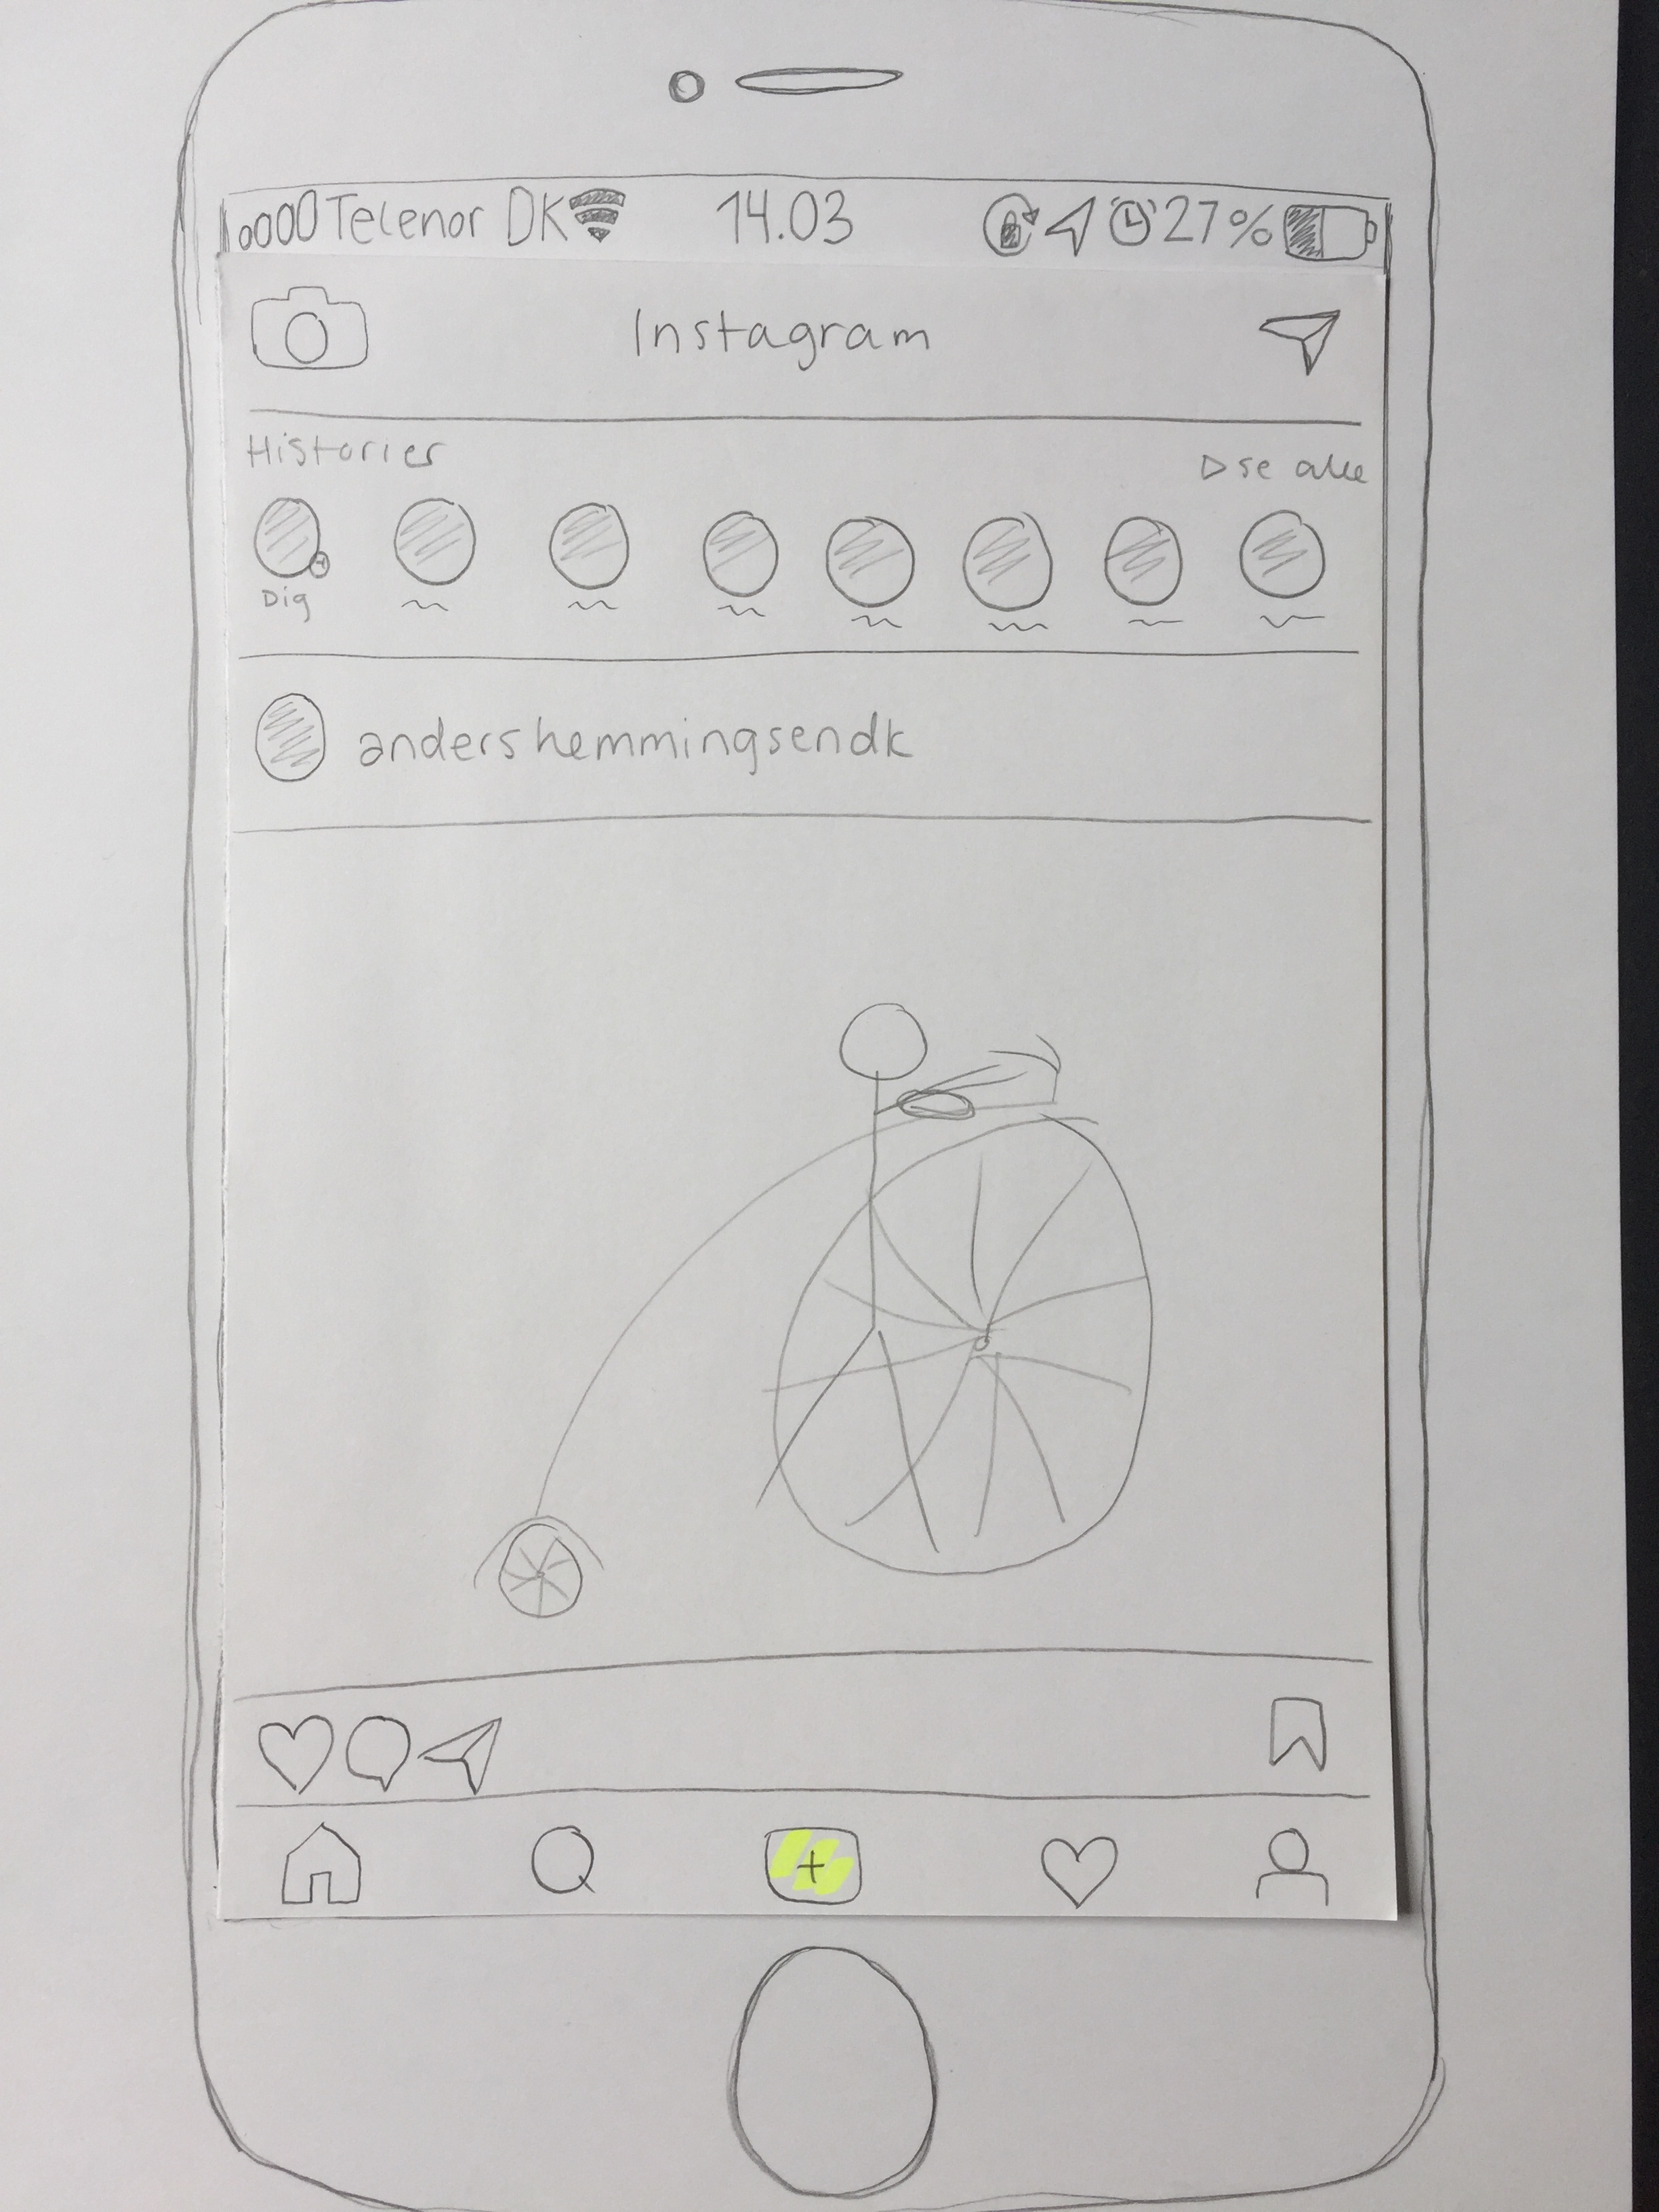 Telenor DK 14.03 27%
Instagram
Historier
se alle
Dig
andershemmingsendk
+